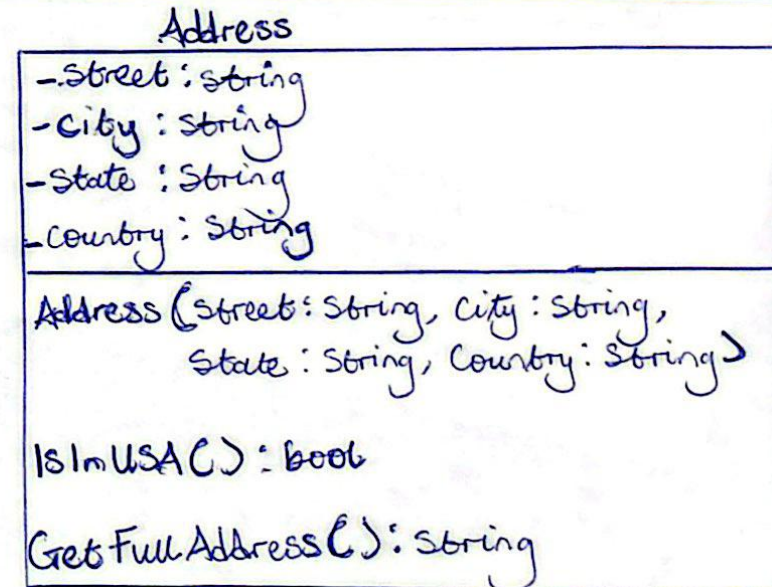 Address
-Street : String
-City : String
-State : String
-Country : String
Address (Street : String, City : String,
State : String, Country : String)
IsInUSA() : bool
GetFullAddress() : String